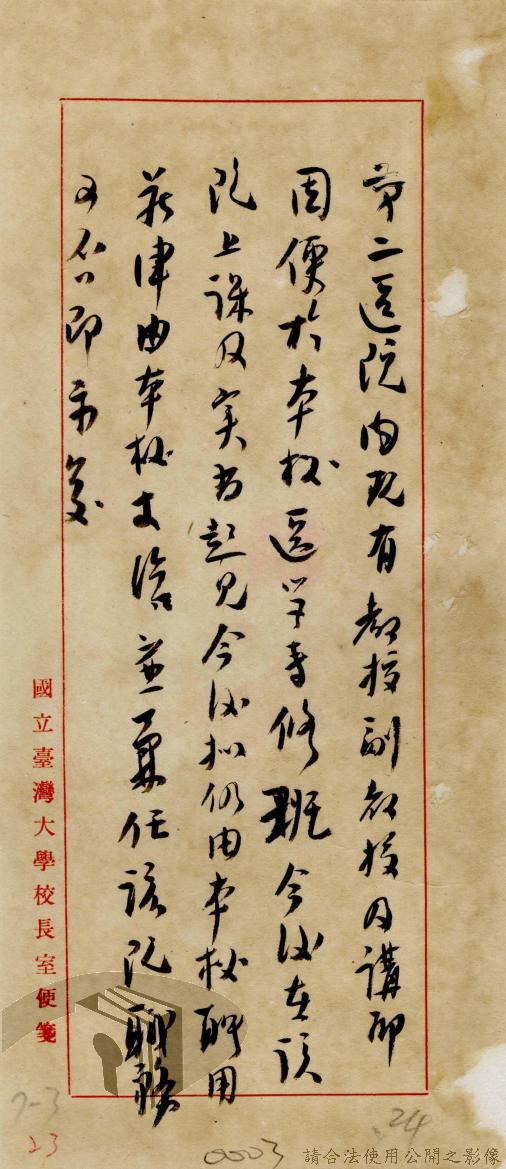 第二医院内現有教授副教授及講師
因便於本校医学専修班今後在該
院上課及実習起見今後拟仍由本校聘用
薪津由本校支給並兼任該院職務
可否即示
國立臺灣大學校長室便箋
7-3
23
0003
24
請合法使用公開之影像